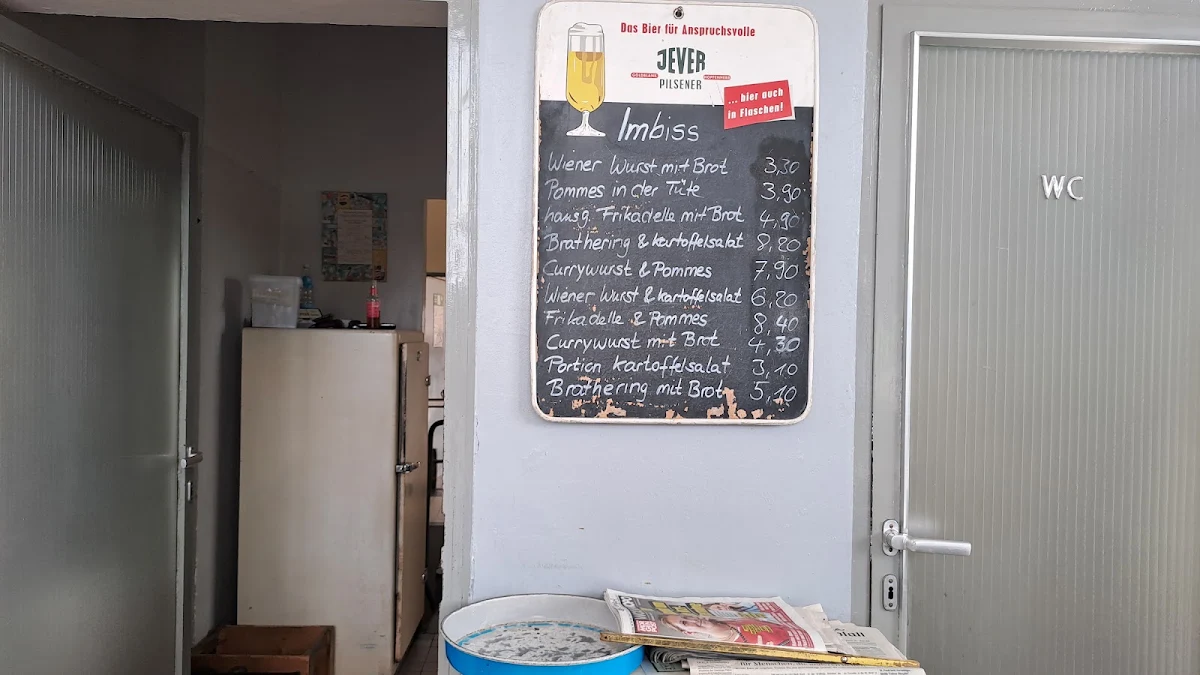 Das Bier für Anspruchsvolle
JEVER
PILSENER
... bier auch
in Flaschen!
Imbiss
Wiener Wurst mit Brot 3,30
Pommes in der Tüte 3,90
hausg. Frikadelle mit Brot 4,90
Brathering & Kartoffelsalat 8,20
Currywurst & Pommes 7,90
Wiener Wurst & Kartoffelsalat 6,20
Frikadelle & Pommes 8,40
Currywurst mit Brot 4,30
Portion Kartoffelsalat 3,10
Brathering mit Brot 5,10
WC